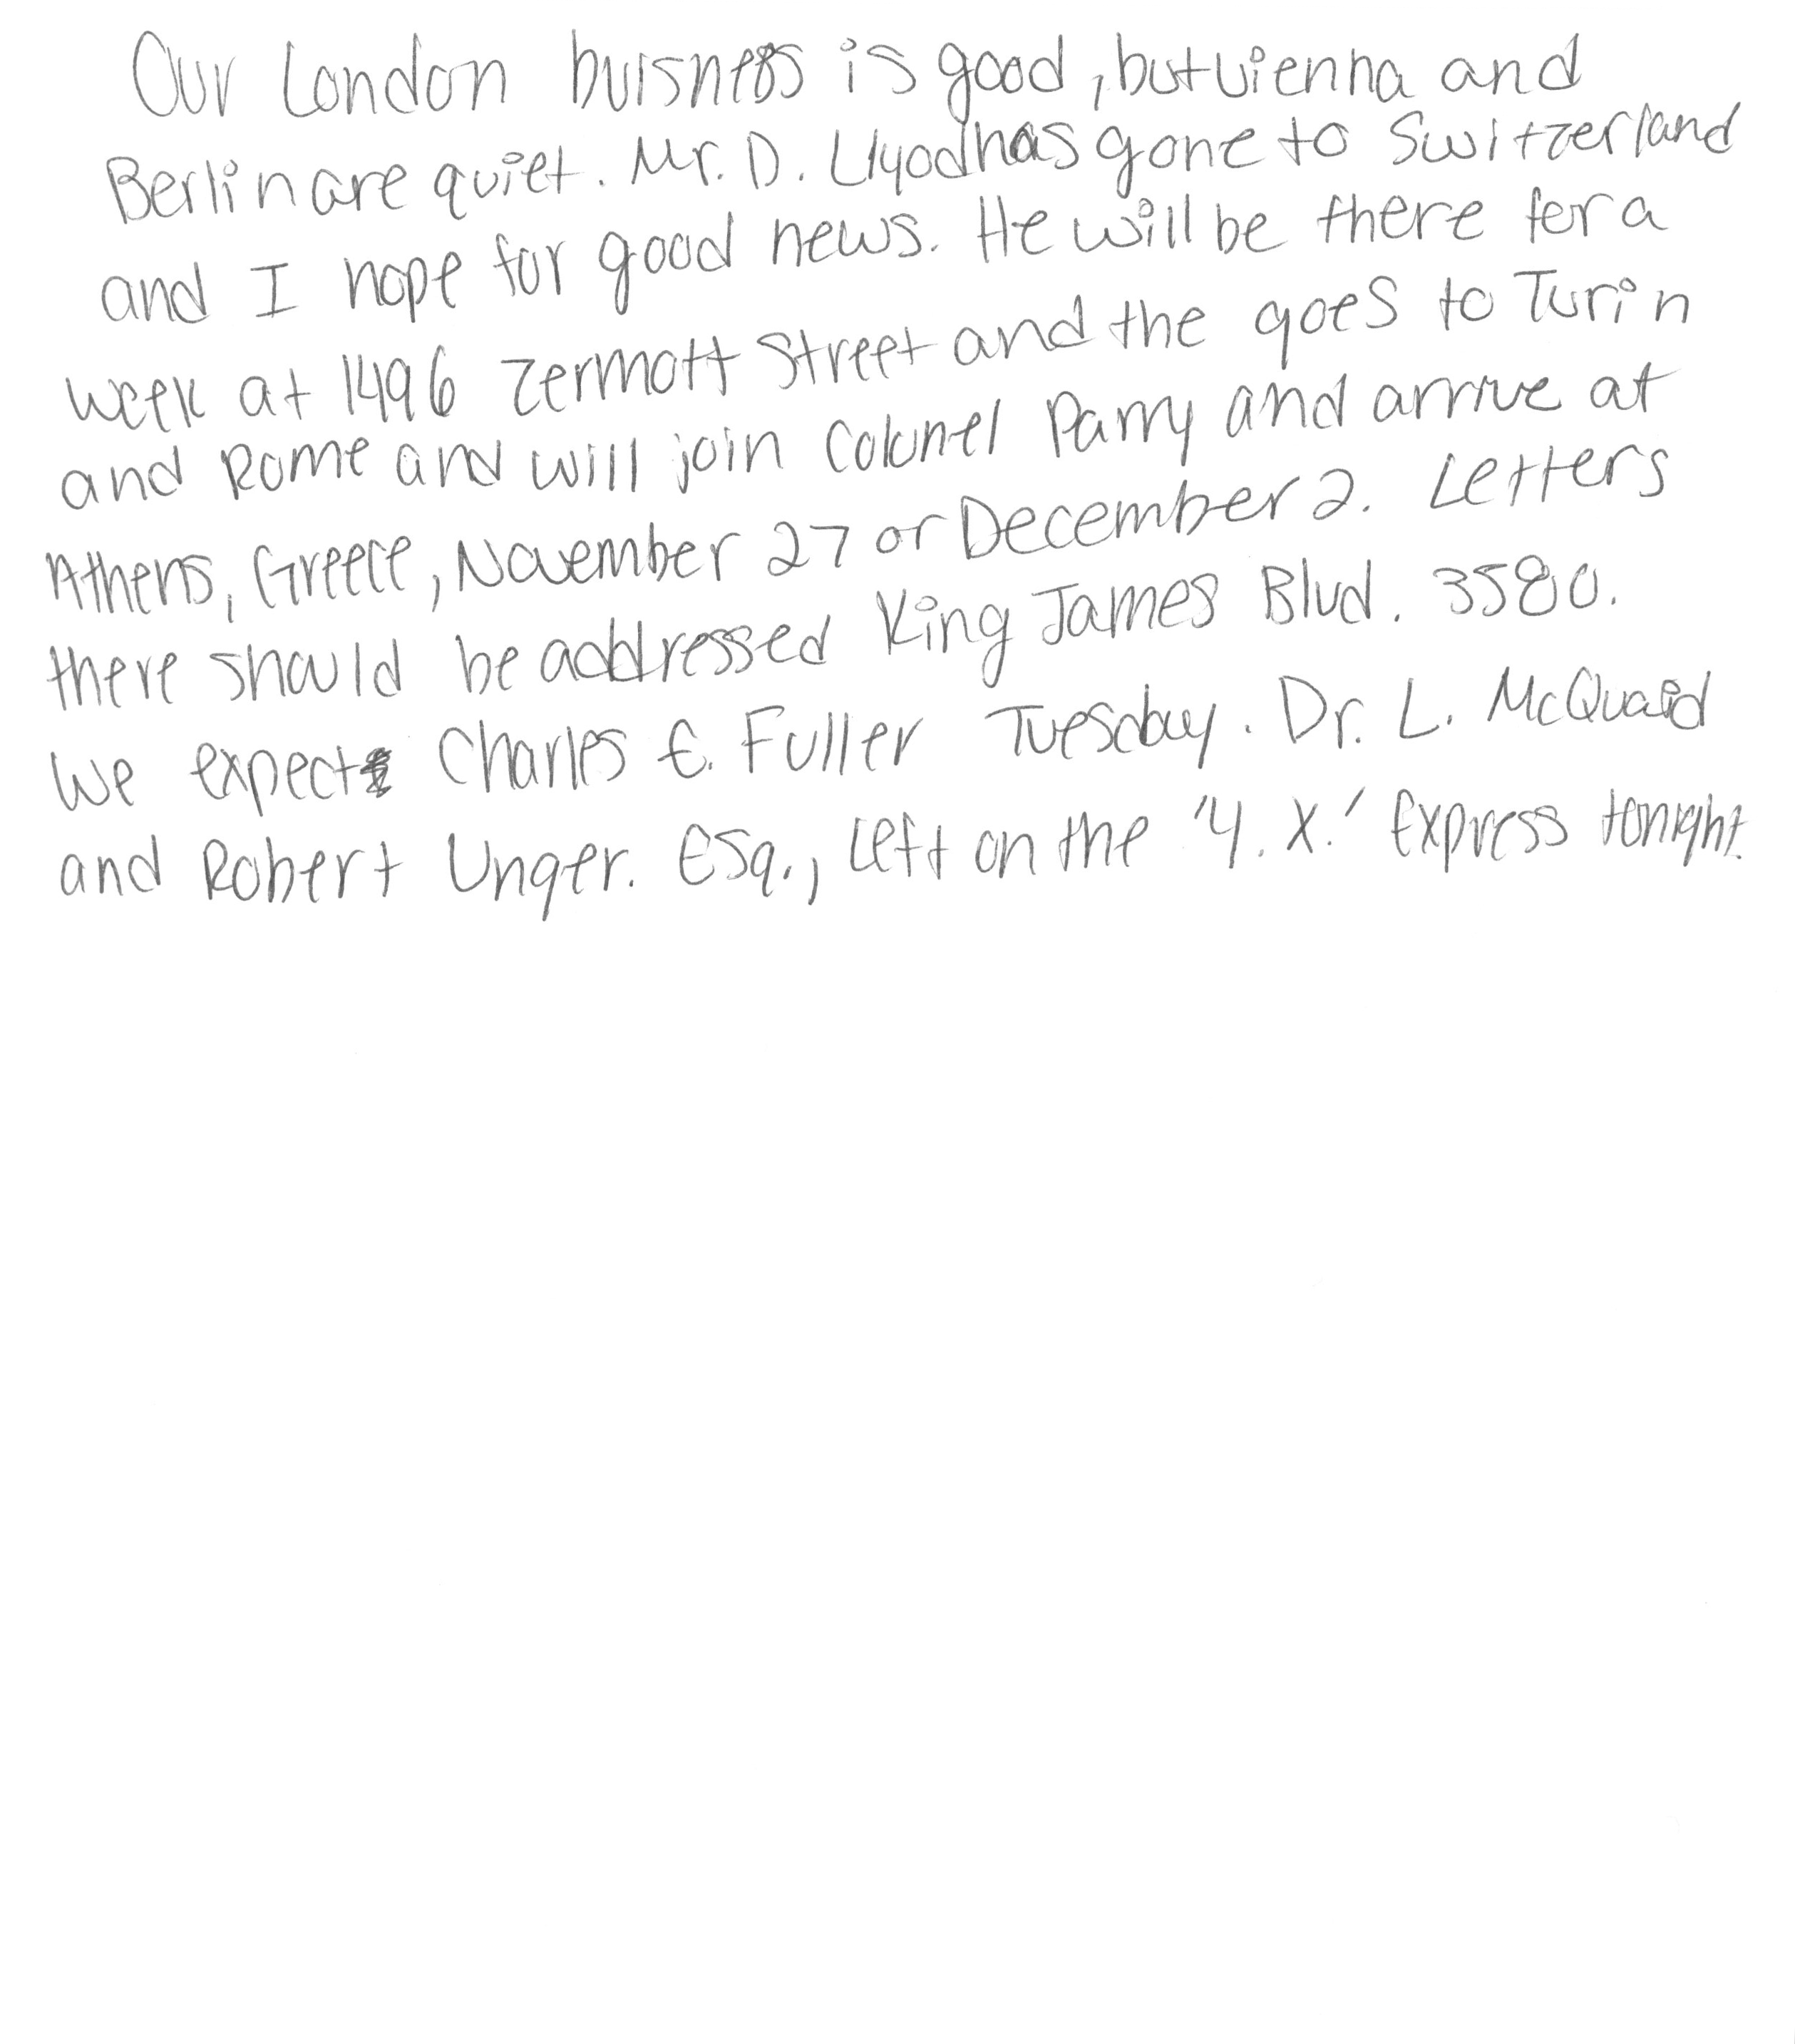 Our London buisness is good, but Vienna and
Berlin are quiet. Mr. D. Llyod has gone to Switzerland
and I hope for good news. He will be there for a
week at 1496 Zermott Street and the goes to Turin
and Rome and will join Colonel Parry and arrive at
Athens, Greece, November 27 or December 2. Letters
there should be addressed King James Blvd. 3580.
We expect Charles E. Fuller Tuesday. Dr. L. McQuaid
and Robert Unger. Esq., left on the 'Y. X.' Express tonight.